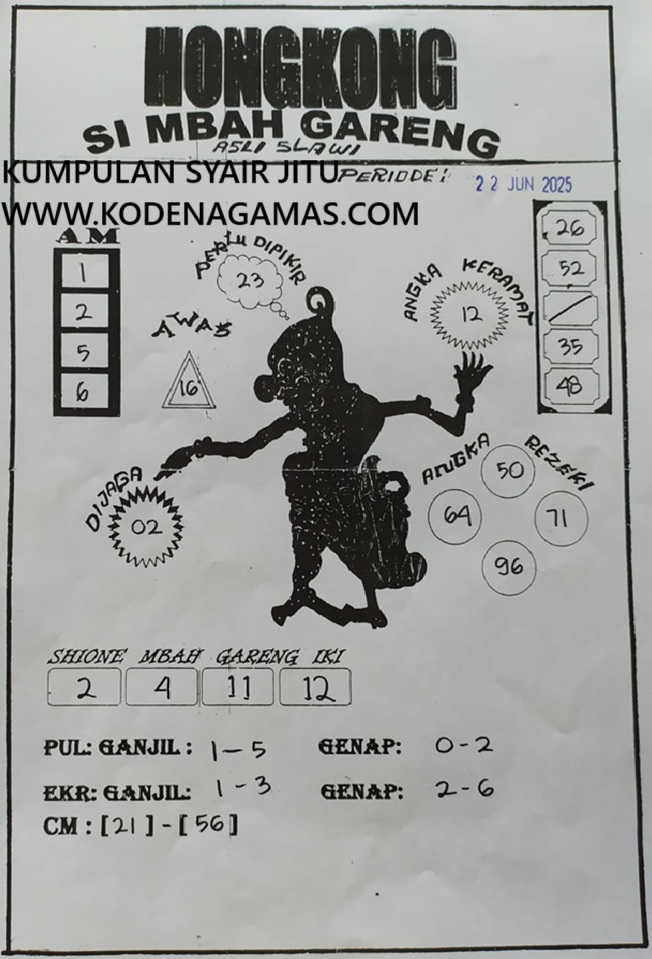 HONGKONG
SI MBAH GARENG
ASLI SLAWI
KUMPULAN SYAIR JITU
PERIODE: 22 JUN 2025
WWW.KODENAGAMAS.COM
AM
1
2
5
6
PERLU DIPIKIR
23
AWAS
16
ANGKA KERAMAT
12
26
52
35
48
DIJAGA
02
ANGKA REZEKI
50
64
71
96
SHIONE MBAH GARENG IKI
2 4 11 12
PUL: GANJIL: 1-5 GENAP: 0-2
EKR: GANJIL: 1-3 GENAP: 2-6
CM : [21]-[56]